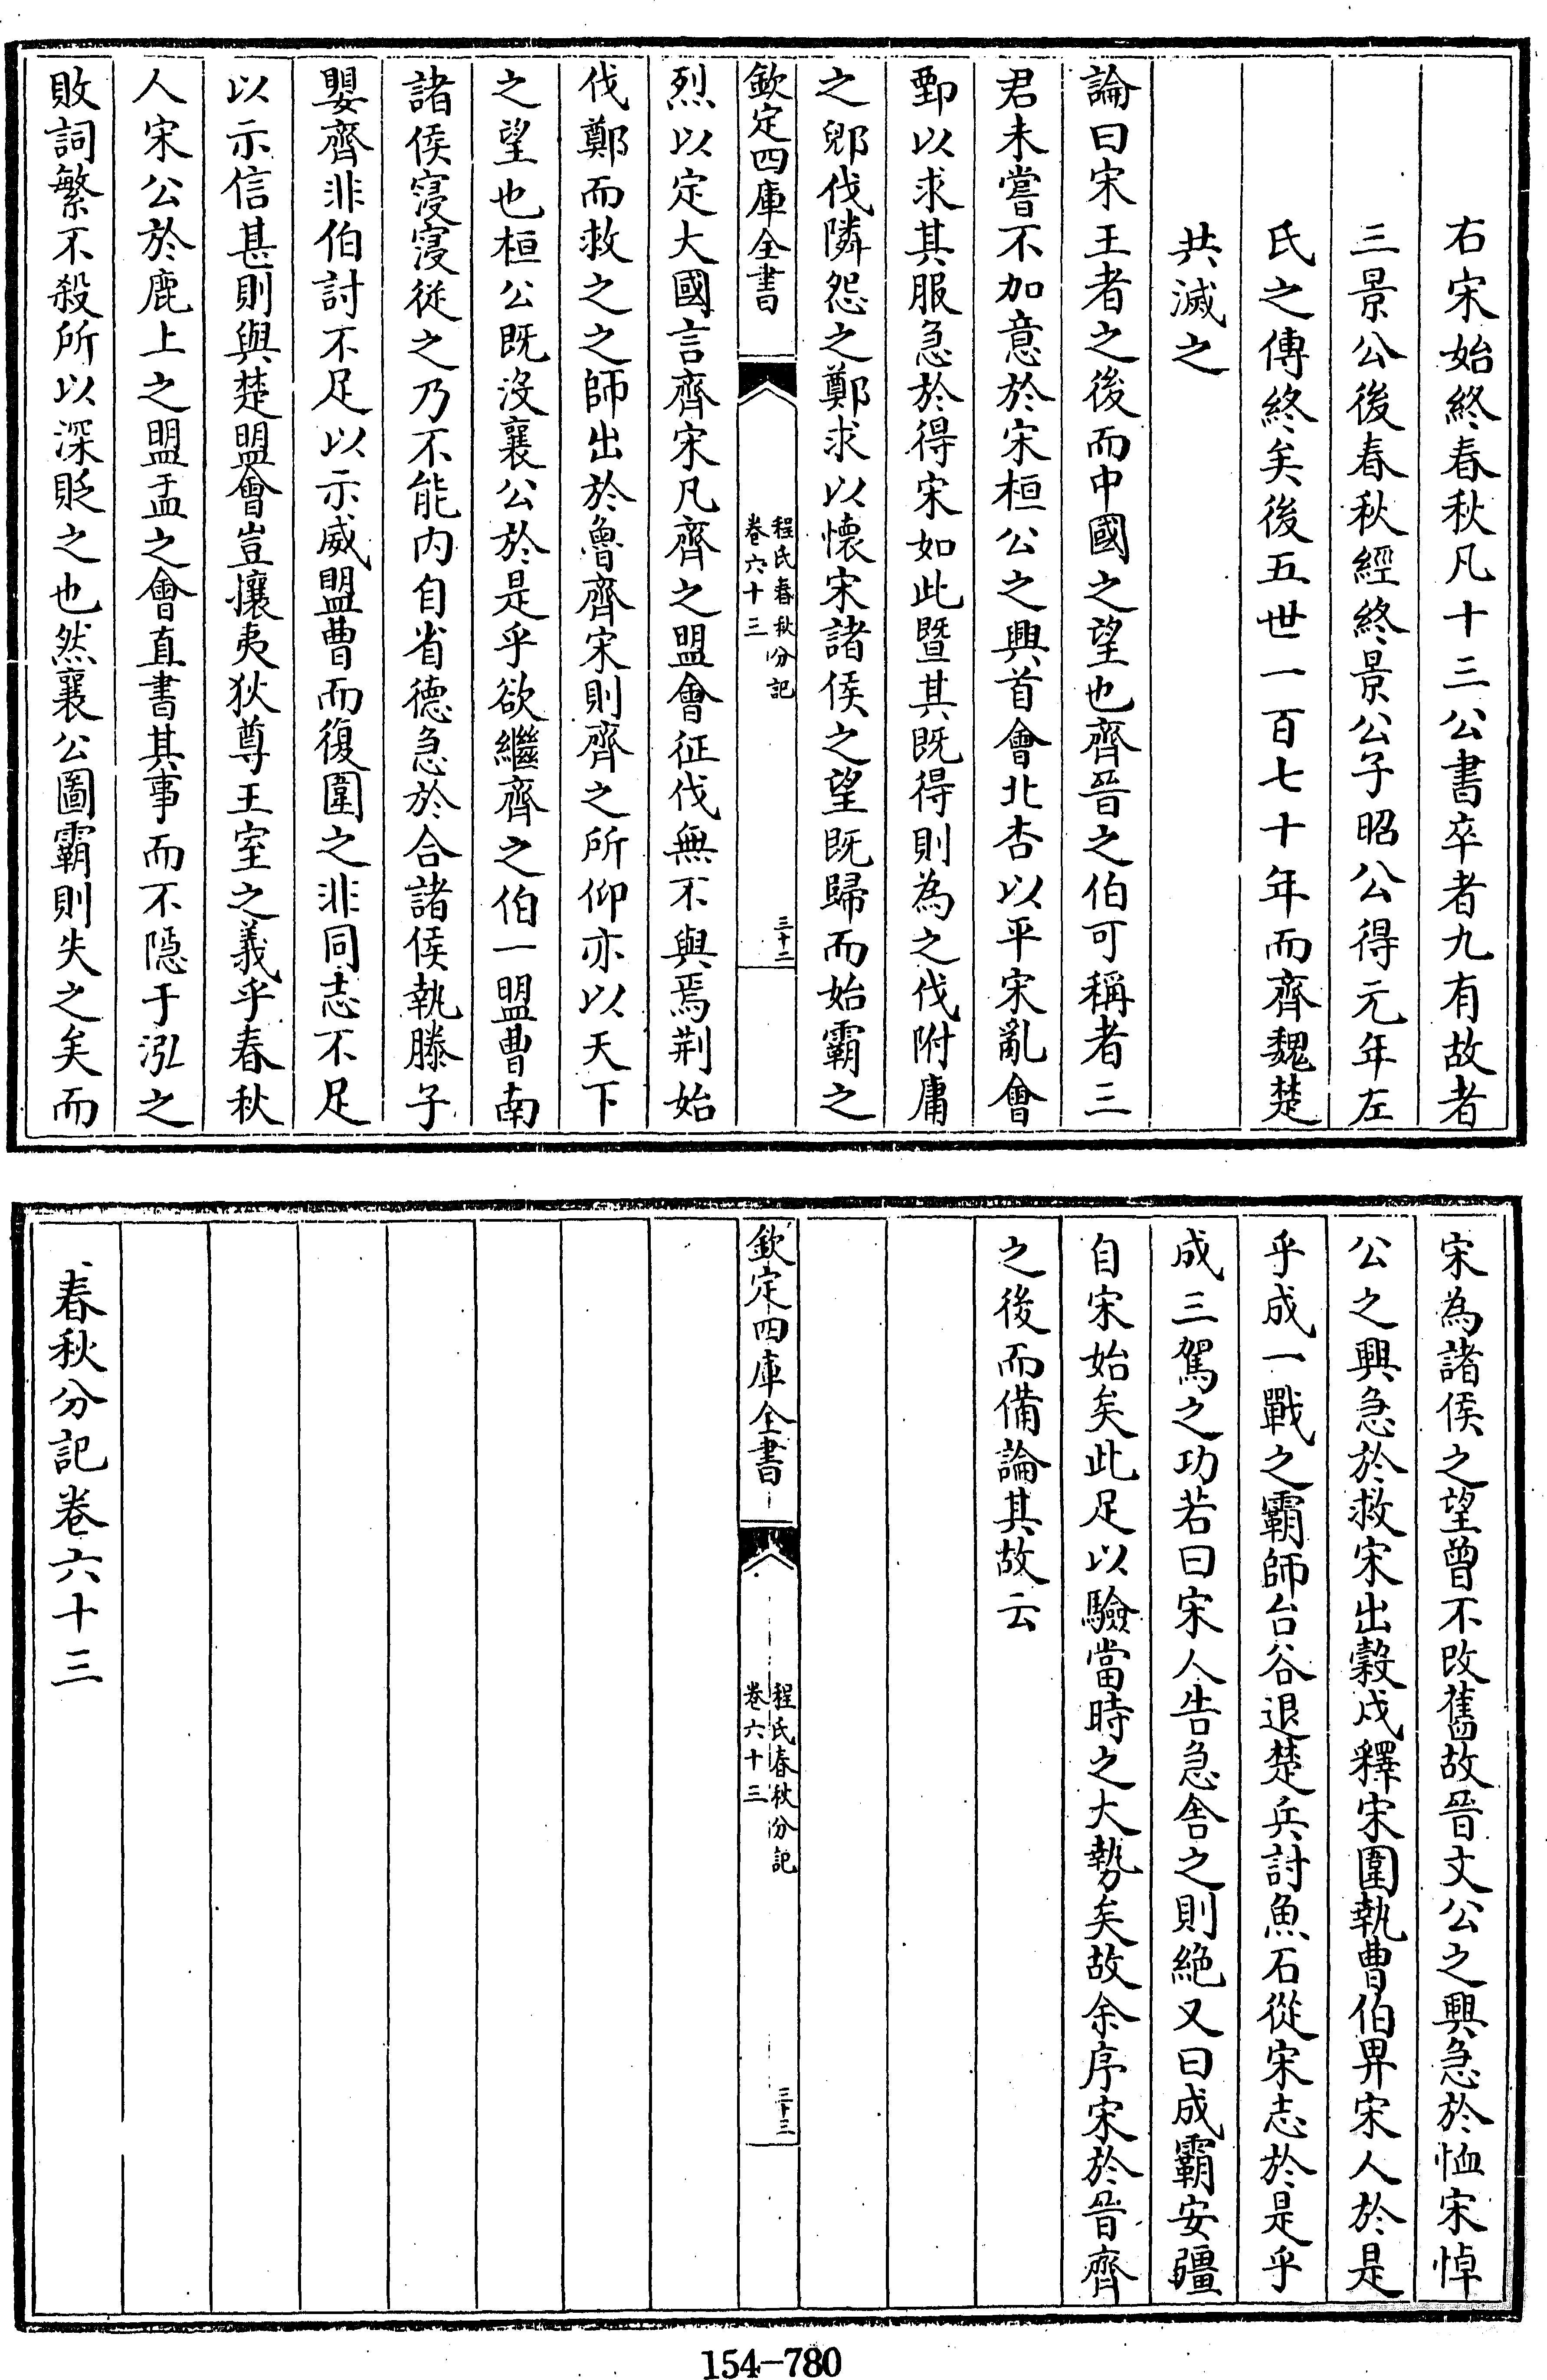 右宋始終春秋凡十三公書卒者九有故者
三景公後春秋經終景公子昭公得元年左
氏之傳終矣後五世一百七十年而齊魏楚
共滅之
論曰宋王者之後而中國之望也齊晉之伯可稱者三
君未嘗不加意於宋桓公之興首會北杏以平宋亂會
鄄以求其服急於得宋如此暨其既得則為之伐附庸
之郳伐隣怨之鄭求以懷宋諸侯之望既歸而始霸之
欽定四庫全書
程氏春秋分記
卷六十三
三十二
烈以定大國言齊宋凡齊之盟會征伐無不與焉荆始
伐鄭而救之之師出於魯齊宋則齊之所仰亦以天下
之望也桓公既沒襄公於是乎欲繼齊之伯一盟曹南
諸侯寖寖從之乃不能内自省德急於合諸侯執滕子
嬰齊非伯討不足以示威盟曹而復圍之非同志不足
以示信甚則與楚盟會豈攘夷狄尊王室之義乎春秋
人宋公於鹿上之盟盂之會直書其事而不隱于泓之
敗詞繁不殺所以深貶之也然襄公圖霸則失之矣而
宋為諸侯之望曾不改舊故晉文公之興急於恤宋悼
公之興急於救宋出榖戍釋宋圍執曹伯畀宋人於是
乎成一戰之霸師台谷退楚兵討魚石從宋志於是乎
成三駕之功若曰宋人告急舎之則絶又曰成霸安疆
自宋始矣此足以驗當時之大勢矣故余序宋於晉齊
之後而備論其故云
欽定四庫全書
程氏春秋分記
卷六十三
三十三
春秋分記卷六十三
154-780